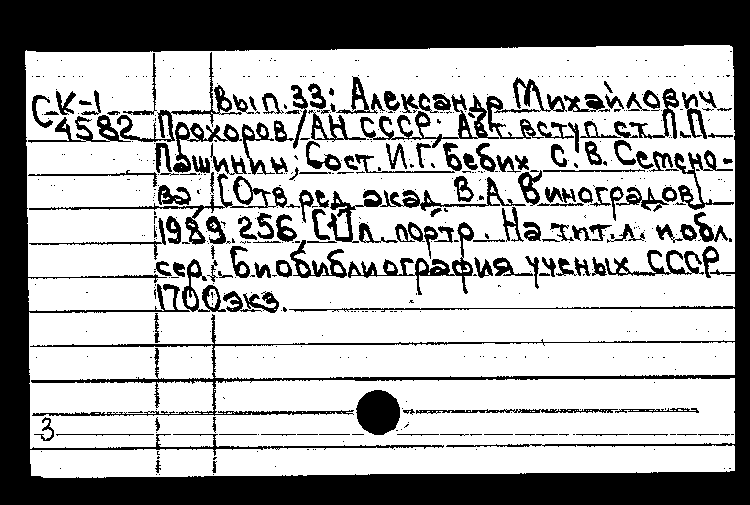 СК-1 Вып. 33: Александр Михайлович
4582 Прохоров / АН СССР; Авт. вступ. ст. П.П.
Пашинин; Сост. И.Г. Бебих, С.В. Семено-
ва; [Отв. ред. акад. В.А. Виноградов].
1989. 256, [1] л. портр. . На т.п.т.л. и обл.
сер.: Биобиблиография ученых СССР
1700 экз.
3